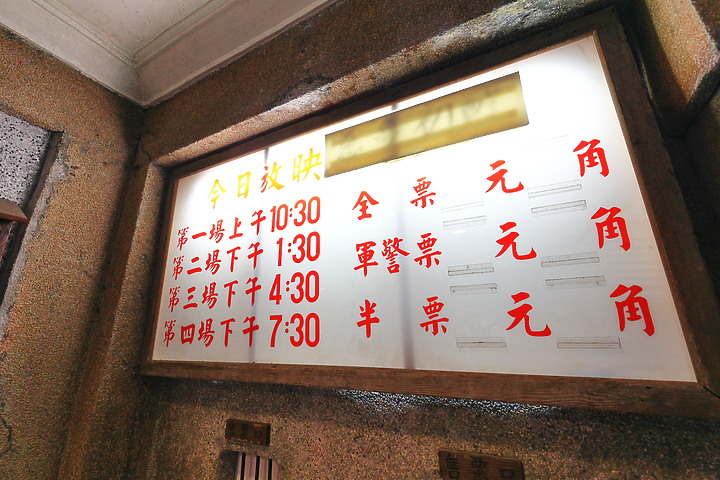 今日放映
第一場上午10:30
第二場下午1:30
第三場下午4:30
第四場下午7:30
全票 元 角
軍警票 元 角
半票 元 角
售票口